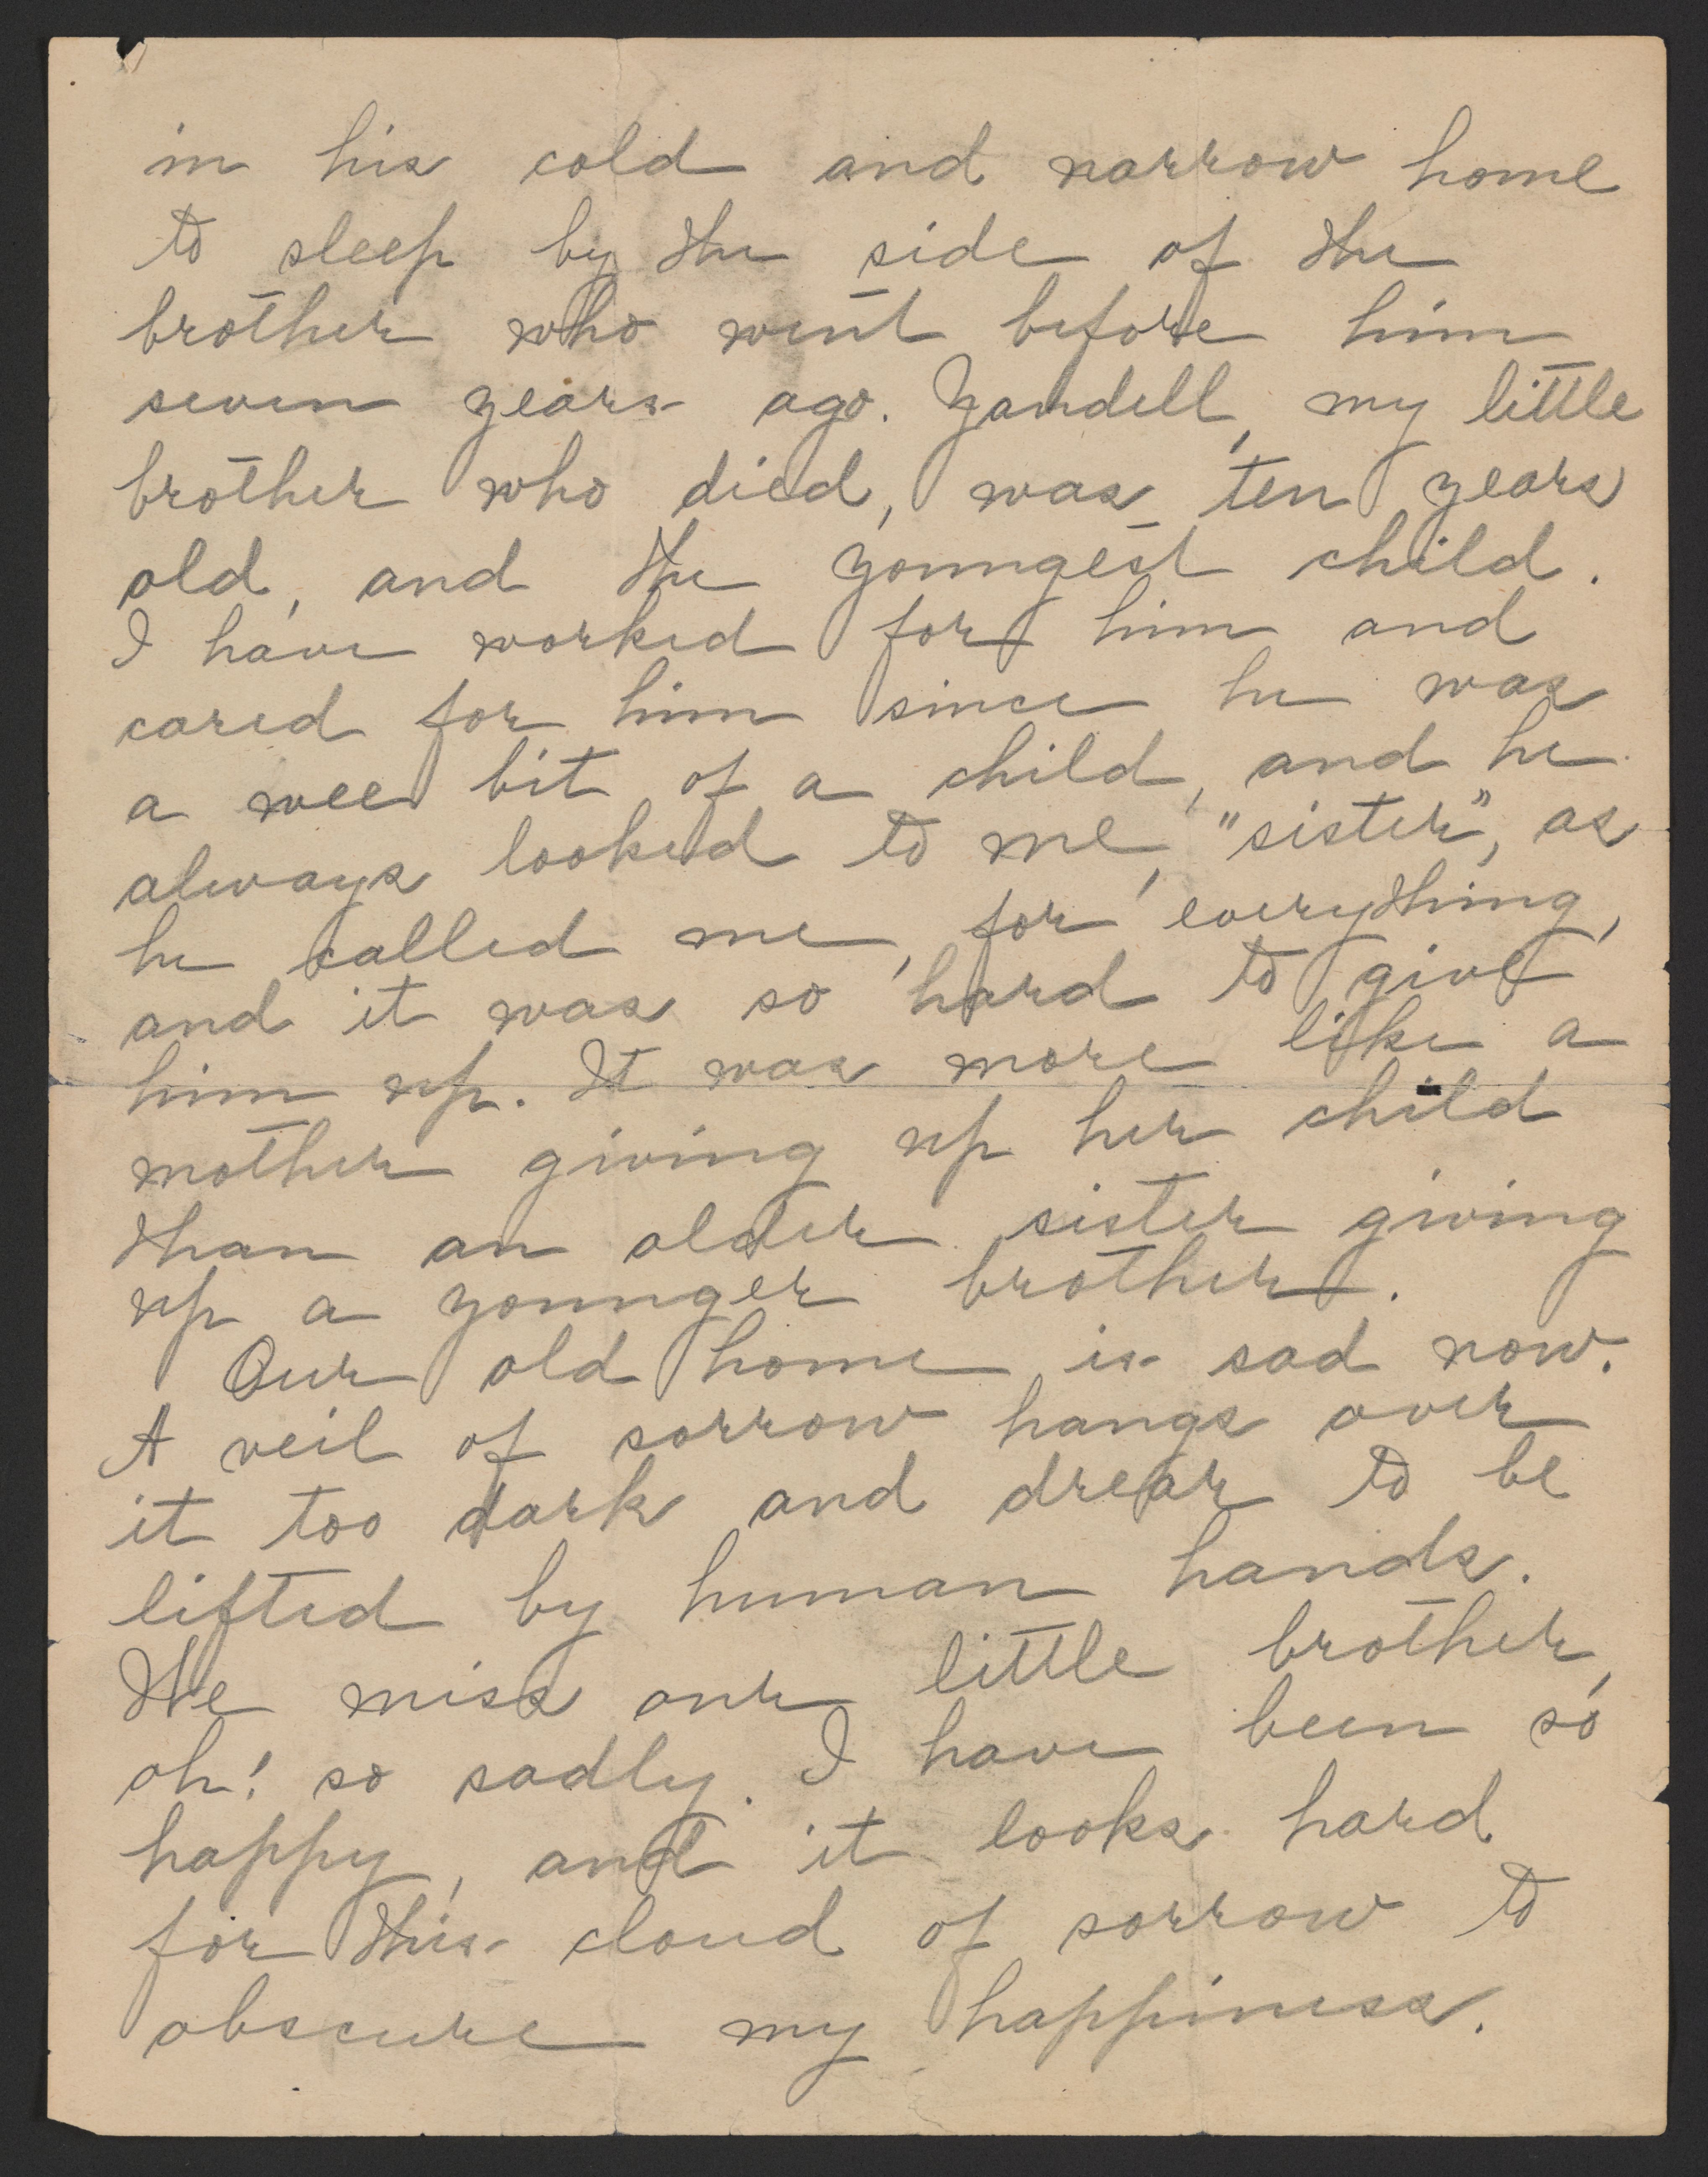 in his cold and narrow home
to sleep by the side of the
brother who went before him
seven years ago. Yandell, my little
brother who died, was ten years
old, and the youngest child.
I have worked for him and
cared for him since he was
a wee bit of a child, and he
always looked to me, "sister", as
he called me, for everything,
and it was so hard to give
him up. It was more like a
mother giving up her child
than an older sister giving
up a younger brother.
Our old home is sad now.
A veil of sorrow hangs over
it too dark and drear to be
lifted by human hands.
We miss our little brother,
oh! so sadly. I have been so
happy, and it looks hard
for this cloud of sorrow to
obscure my happiness.